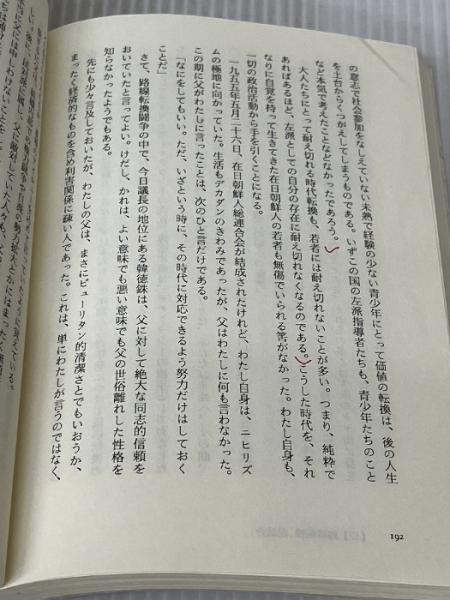 の意志で社会参加をなしえていない未熟で経験の少ない青少年にとって価値の転換は、後の人生
を土台からくつがえしてしまうものである。いずこの国の左派指導者たちも、青少年たちのこと
など本気で考えたことなどなかったであろう。
大人たちにとって耐え切れる時代転換も、若者には耐え切れないことが多い。つまり、純粋で
あればあるほど、左派としての自分の存在に耐え切れなくなるのである。こうした時代を、それ
なりに自覚を持って生きてきた在日朝鮮人の若者も無傷でいられる筈がなかった。わたし自身も、
一切の政治活動から手を引くことになる。
一九五五年五月二十六日、在日朝鮮人総連合会が結成されたけれど、わたし自身は、ニヒリズ
ムの極地に向かっていた。生活もデカダンのきわみであったが、父はわたしに何も言わなかった。
この期に父がわたしに言ったことは、次のひと言だけである。
「なにをしてもいい。ただ、いざという時に、その時代に対応できるよう努力だけはしておく
ことだ」
さて、路線転換闘争の中で、今日議長の地位にある韓徳銖は、父に対して絶大な同志的信頼を
おいていたと言ってよい。けだし、かれは、よい意味でも悪い意味でも父の世俗離れした性格を
知らなかったようでもある。
先にも少々言及しておいたが、わたしの父は、まさにピューリタン的清潔さとでもいおうか、
まったく経済的なものを含め利害関係に疎い人であった。これは、単にわたしが言うのではなく、
192